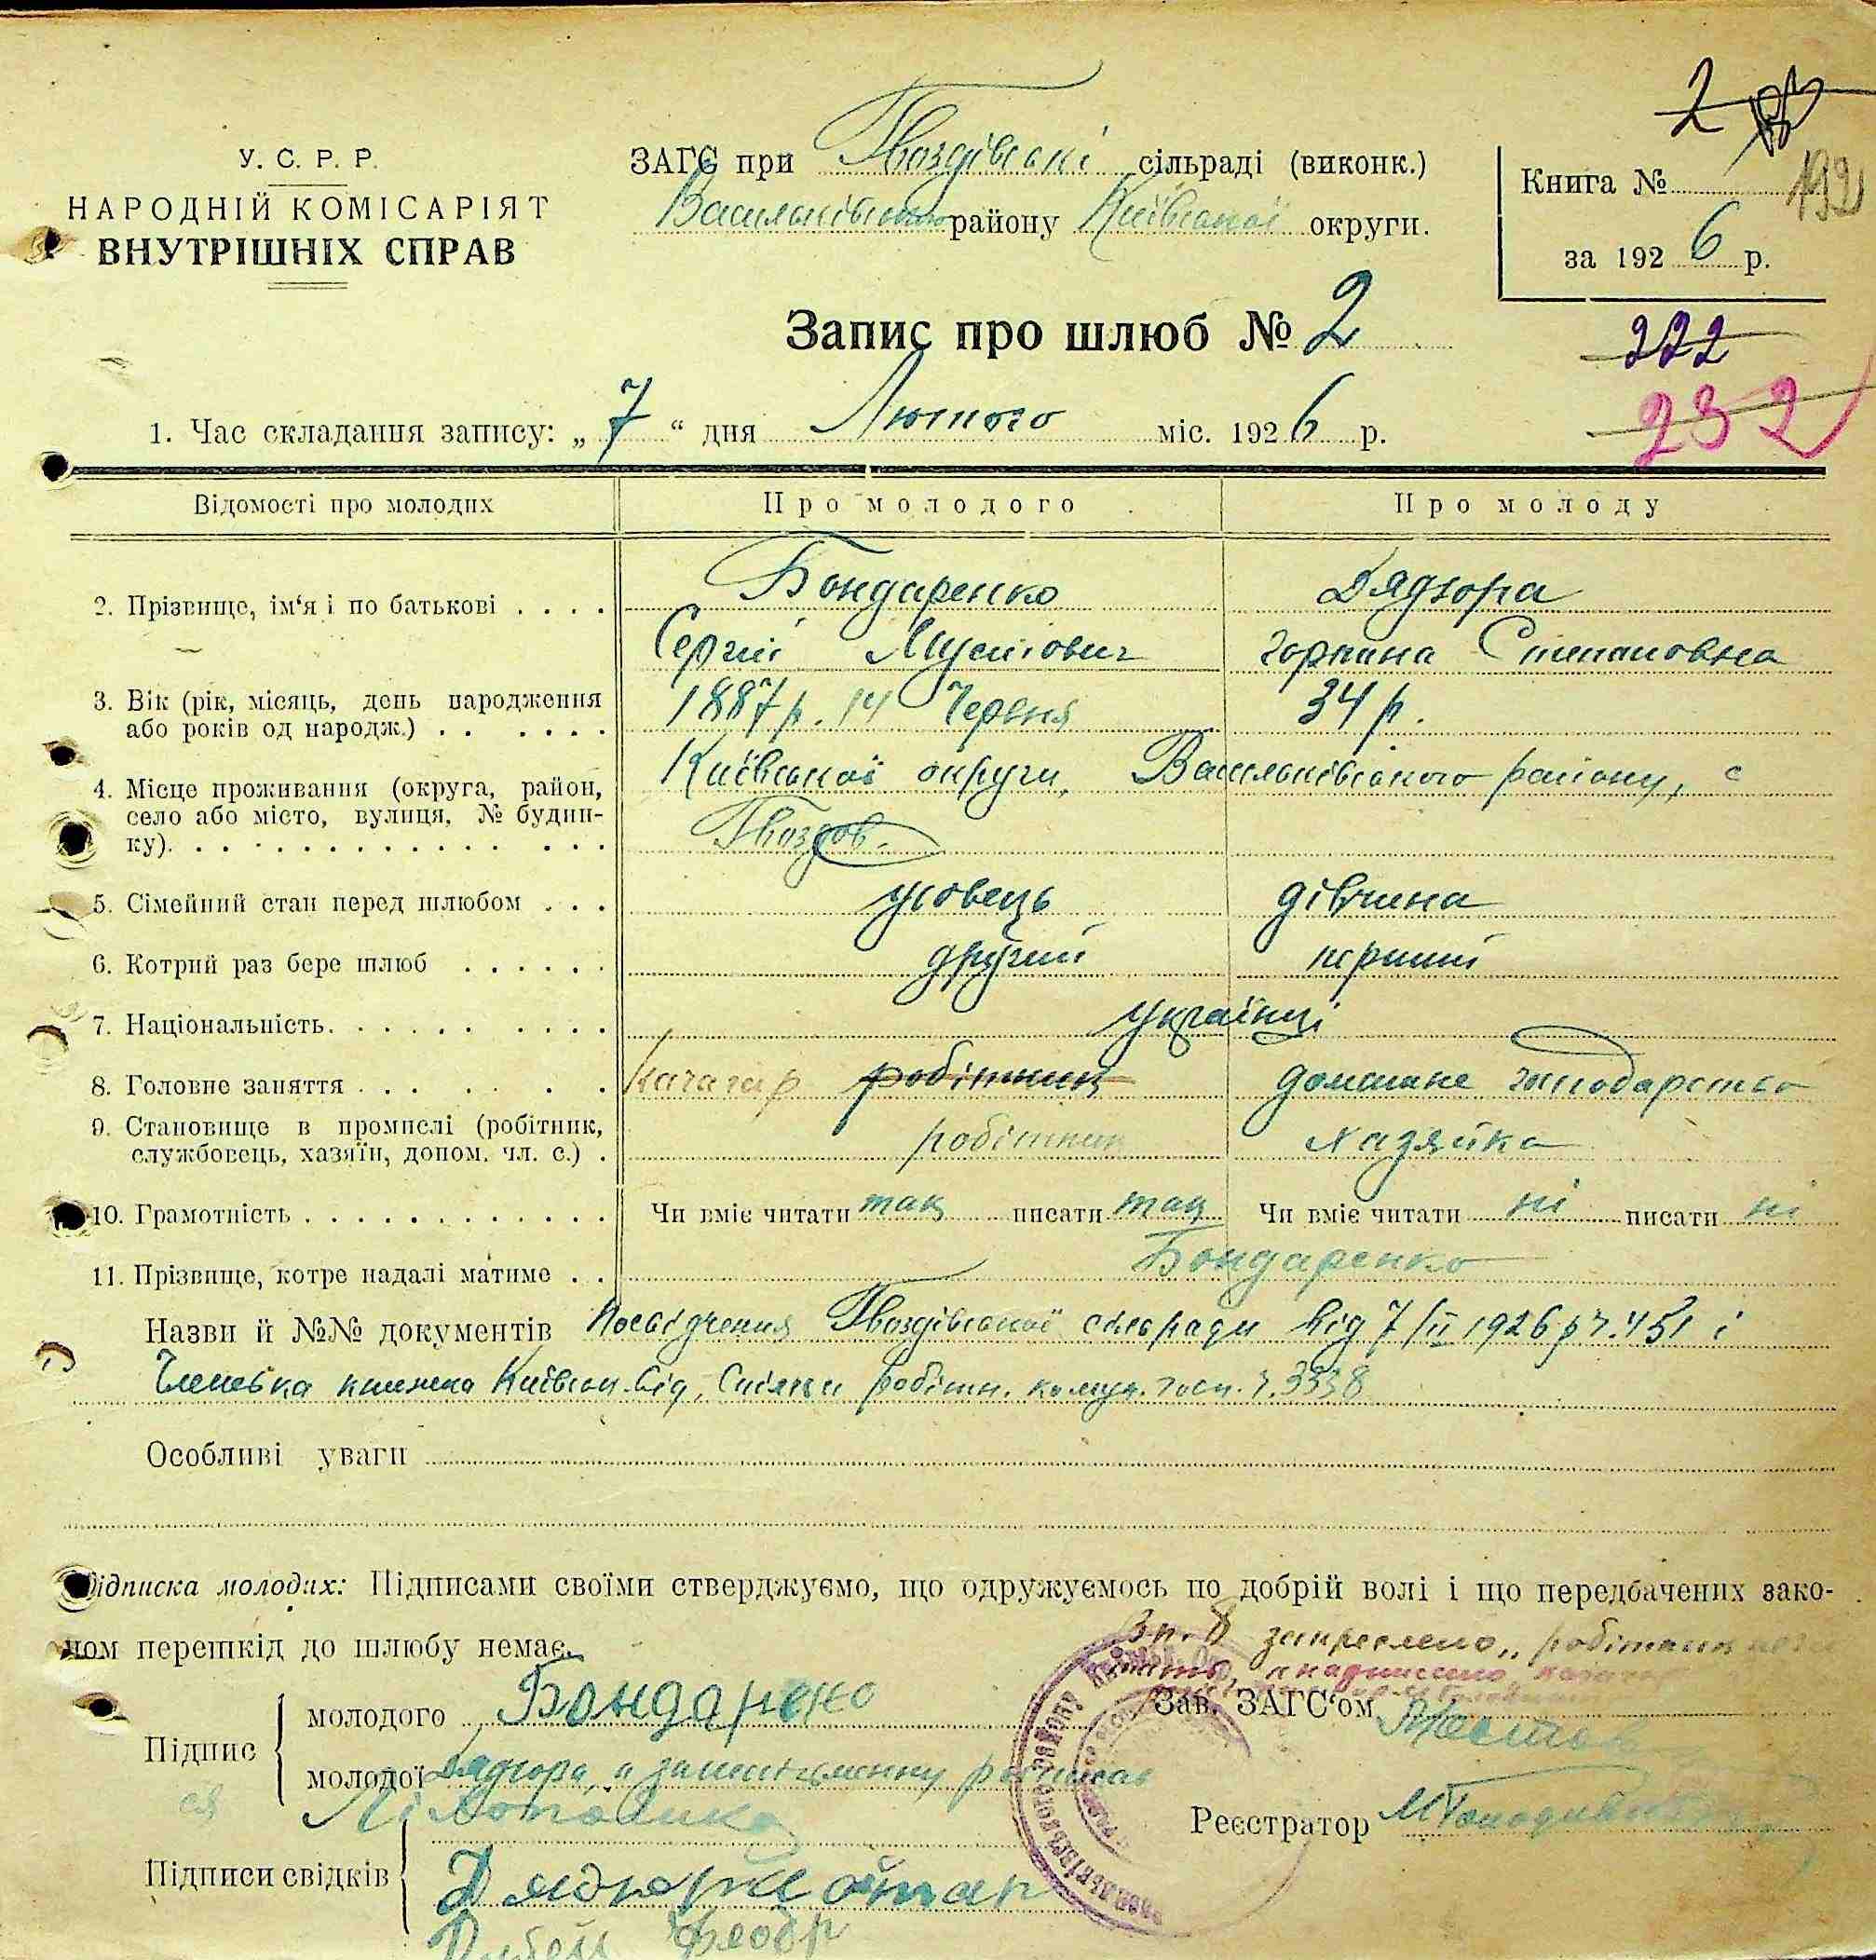 2
192
У. С. Р. Р.
НАРОДНІЙ КОМІСАРІЯТ
ВНУТРІШНІХ СПРАВ
ЗАГС при Гвоздівські сільраді (виконк.)
Васильківського району Київської округи.
Книга №
за 1926 р.
Запис про шлюб № 2
222
232
1. Час складання запису: „7“ дня Лютого міс. 1926 р.
Відомості про молодих Про молодого Про молоду
2. Прізвище, ім‘я і по батькові . . . . Бондаренко Дядюра
Сергій Мусійович Горпина Степановна
3. Вік (рік, місяць, день народження 1887 р. 14 Червня 34 р.
або років од народж.) . . . . . .
4. Місце проживання (округа, район, Київської округи, Васильківського району, с
село або місто, вулиця, № будин-
ку). Гвоздов.
5. Сімейний стан перед шлюбом . . . удовець дівчина
6. Котрий раз бере шлюб . . . . . . другий перший
7. Національність. . . . . . . . . українці
8. Головне заняття . . . . . . Качагар робітник домашне господарство
9. Становище в промислі (робітник, робітник хазяйка
службовець, хазяїн, допом. чл. с.) .
10. Грамотність . . . . . . . . . . . . Чи вміє читати так писати так Чи вміє читати ні писати ні
11. Прізвище, котре надалі матиме . . Бондаренко
Назви й №№ документів Посвідчення Гвоздівської сільради від 7/II 1926 р ч. 451 і
Членська книжка Київськ. від. Спілки робітн. комун. госп. ч. 3338
Особливі уваги
Підписка молодих: Підписами своїми стверджуємо, що одружуємось по добрій волі і що передбачених зако-
ном перешкід до шлюбу немає.
Зп. 8 закреслено „робітник
надписано
Зав. ЗАГС‘ом
Підпис молодого Бондарено
молодої Дядюра, а за неписьменну росписав
ся
Реєстратор
Підписи свідків
Дядюра